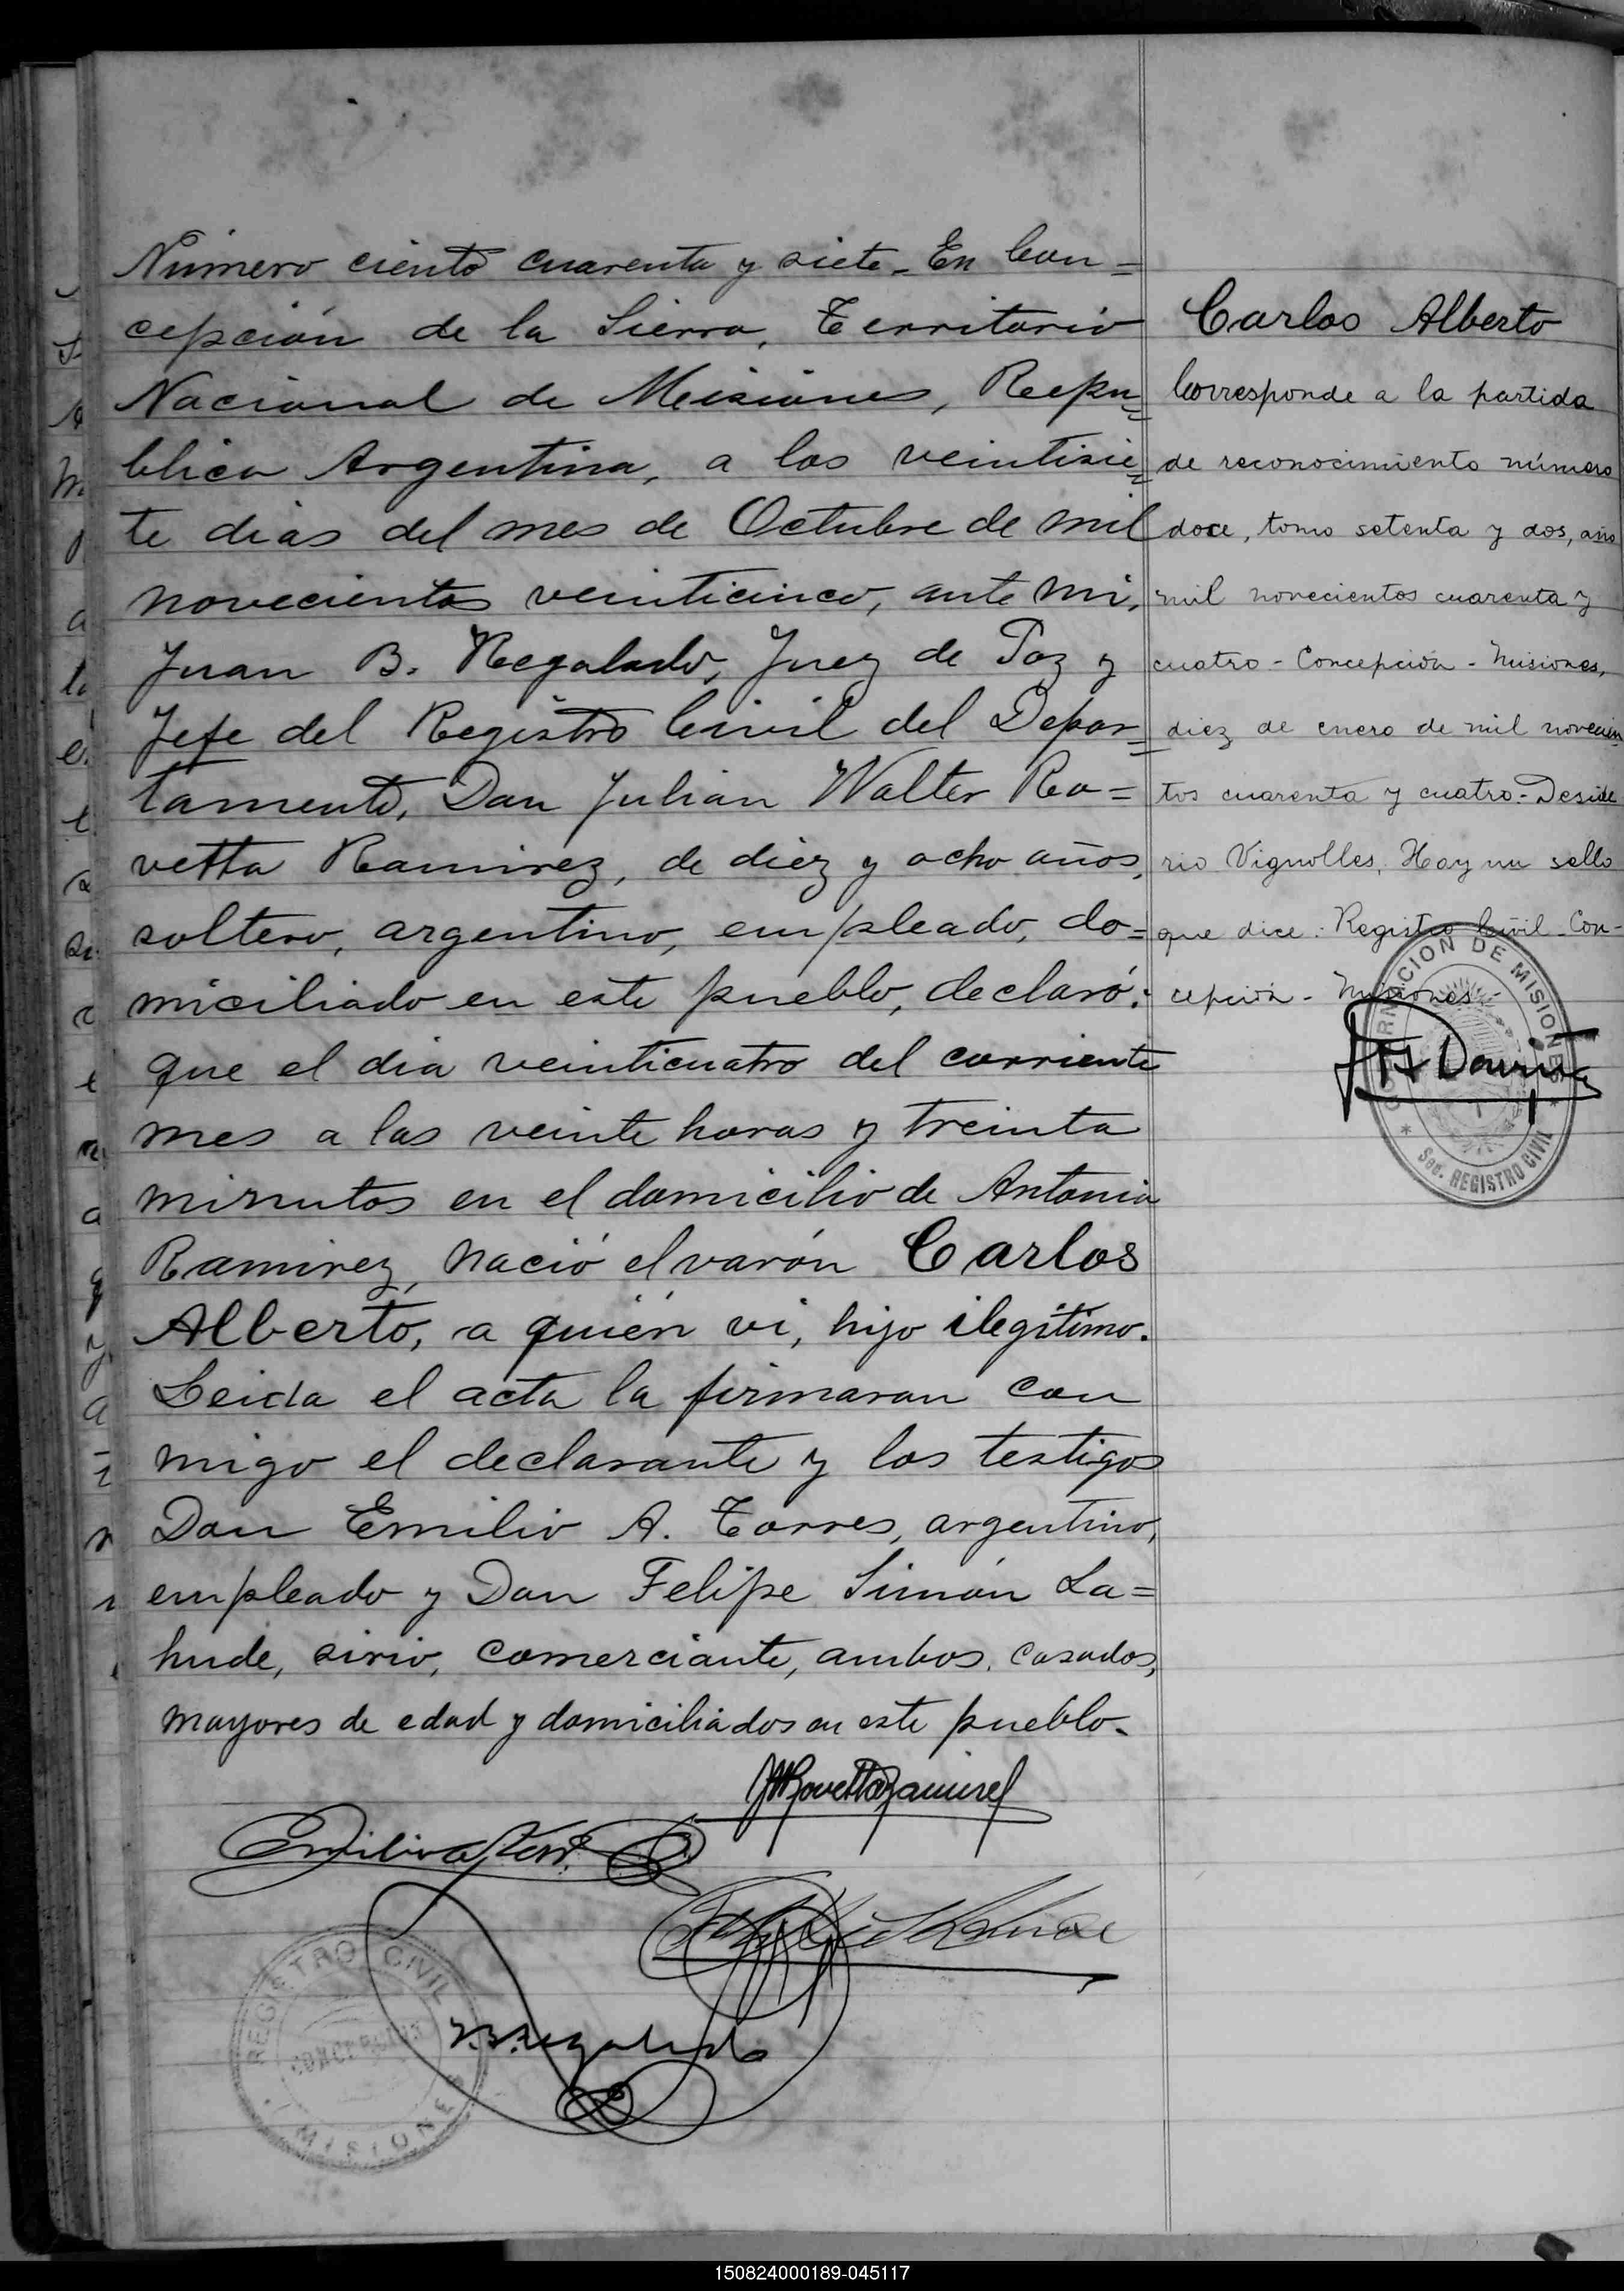 Número ciento cuarenta y siete_ En Con=
cepción de la Sierra, Territorio
Nacional de Misiones, Repu=
blica Argentina, a los veintisie=
te dias del mes de Octubre de mil
novecientos veinticinco, ante mi,
Juan B. Regalado, Juez de Paz y
Jefe del Registro Civil del Depar=
tamento, Don Julian Walter Ro=
vetta Ramirez, de diez y ocho años,
soltero, argentino, empleado, do=
miciliado en este pueblo, declaró:
que el dia veinticuatro del corriente
mes a las veinte horas y treinta
minutos en el domicilio de Antonia
Ramirez, nació el varón Carlos
Alberto, a quién vi, hijo ilegítimo.
Leida el acta la firmaron con
migo el declarante y los testigos
Don Emilio A. Torres, argentino,
empleado y Don Felipe Simón La=
hude, sirio, comerciante, ambos casados,
mayores de edad y domiciliados en este pueblo_
JWRovettaRamirez
Emilio A Torres
JBRegalado
REGISTRO CIVIL
CONCEPCION
MISIONES
Carlos Alberto
Corresponde a la partida
de reconocimiento número
doce, tomo setenta y dos, año
mil novecientos cuarenta y
cuatro - Concepción - Misiones,
diez de enero de mil novecien
tos cuarenta y cuatro.- Deside
rio Vignolles. Hay un sello
que dice: Registro Civil - Con-
cepción - Misiones-
GOBERNACION DE MISIONES
Sec. REGISTRO CIVIL
150824000189-045117